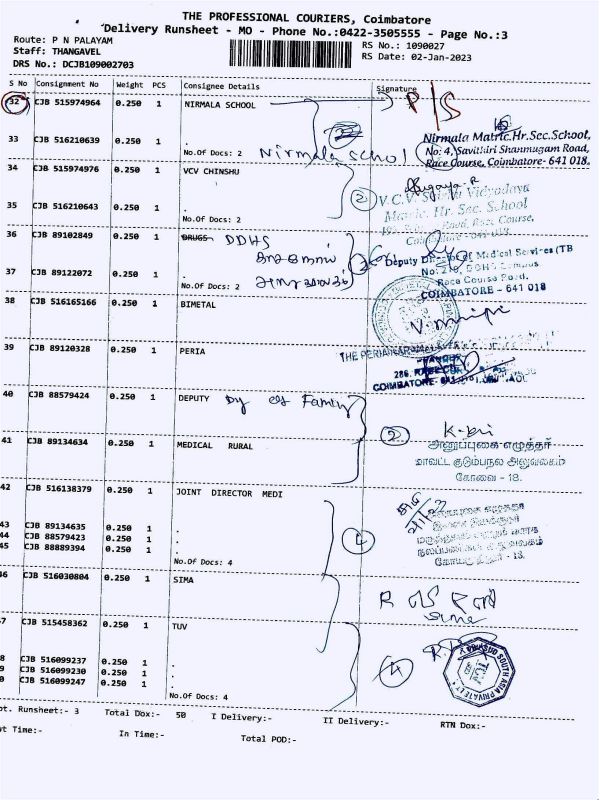 THE PROFESSIONAL COURIERS, Coimbatore
Delivery Runsheet - MO - Phone No.:0422-3505555 - Page No.:3
Route: P N PALAYAM
RS No.: 1090027
Staff: THANGAVEL
RS Date: 02-Jan-2023
DRS No.: DCJB109002703
S No Consignment No Weight PCS Consignee Details Signature
32 CJB 515974964 0.250 1 NIRMALA SCHOOL P/S
33 CJB 516210639 0.250 1 .
No.Of Docs: 2 Nirmala School
Nirmala Matric.Hr.Sec.School,
No: 4, Savithiri Shanmugam Road,
Race Course, Coimbatore- 641 018.
34 CJB 515974976 0.250 1 VCV CHINSHU
2
V.C.V. Vidyodaya
Matric. Hr. Sec. School
Road, Race Course,
35 CJB 516210643 0.250 1 .
No.Of Docs: 2
36 CJB 89102849 0.250 1 DRUGS DDHS
37 CJB 89122072 0.250 1 .
No.Of Docs: 2
Deputy Director of Medical Services (TB
Race Course Road,
COIMBATORE - 641 018
38 CJB 516165166 0.250 1 BIMETAL
39 CJB 89120328 0.250 1 PERIA
40 CJB 88579424 0.250 1 DEPUTY Dy of Family
41 CJB 89134634 0.250 1 MEDICAL RURAL
2
அனுப்புகை எழுத்தர்
மாவட்ட குடும்பநல அலுவலகம்
கோவை - 18.
42 CJB 516138379 0.250 1 JOINT DIRECTOR MEDI
43 CJB 89134635 0.250 1 .
44 CJB 88579423 0.250 1 .
45 CJB 88889394 0.250 1 .
No.Of Docs: 4
4
46 CJB 516030804 0.250 1 SIMA
47 CJB 515458362 0.250 1 TUV
CJB 516099237 0.250 1 .
CJB 516099230 0.250 1 .
CJB 516099247 0.250 1 .
No.Of Docs: 4
4
SOUTH ASIA PRIVATE
Runsheet:- 3 Total Dox:- 50 I Delivery:- II Delivery:- RTN Dox:-
Time:- In Time:- Total POD:-